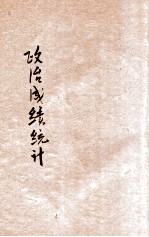 政治成绩统计